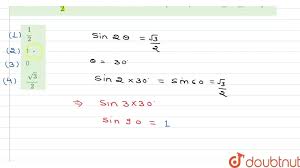 2
(1) 1/2
(2) 1
(3) 0
(4) √3/2
Sin 2θ = √3/2
θ = 30°
Sin 2×30° = Sin 60 = √3/2
⇒ Sin 3×30°
Sin 90 = 1
doubtnut